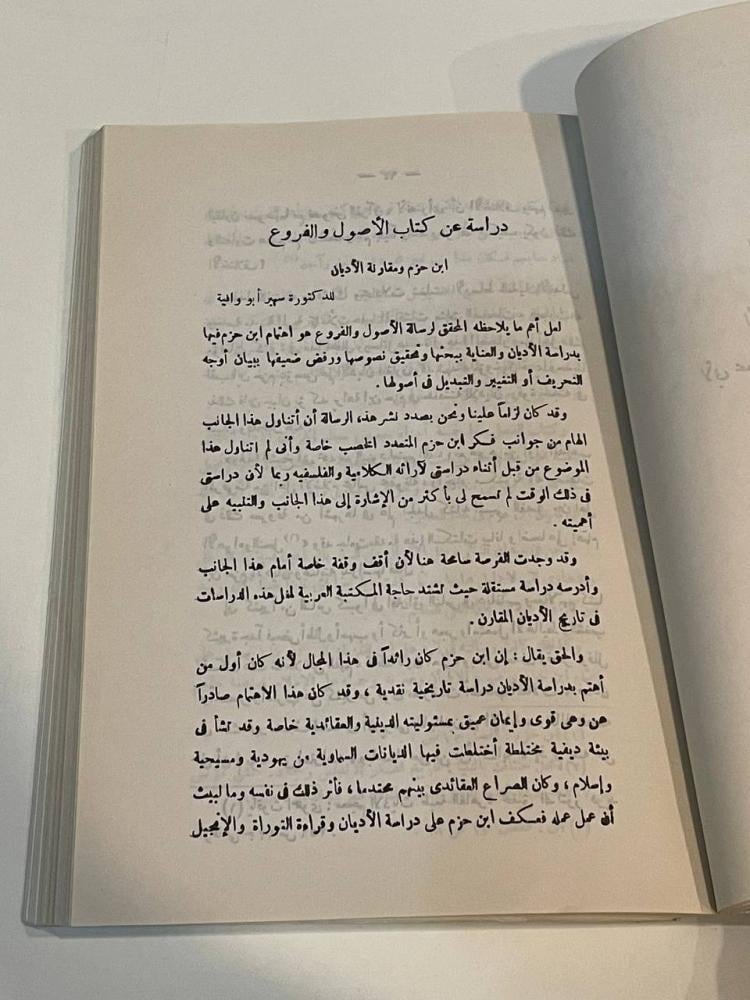 دراسة عن كتاب الأصول والفروع
ابن حزم ومقارنة الأديان
للدكتورة سهير أبو وافية
لعل أهم ما يلاحظه المحقق لرسالة الأصول والفروع هو اهتمام ابن حزم فيها
بدراسة الأديان والعناية ببحثها وتحقيق نصوصها ورفض ضعيفها ببيان أوجه
التحريف أو التغيير والتبديل فى أصولها .
وقد كان لزاماً علينا ونحن بصدد نشر هذه الرسالة أن أتناول هذا الجانب
الهام من جوانب فكر ابن حزم المتعدد الخصب خاصة وأنى لم اتناول هذا
الموضوع من قبل أثناء دراستى لآرائه الكلامية والفلسفيه ربما لأن دراستى
فى ذلك الوقت لم تسمح لى بأكثر من الإشارة إلى هذا الجانب والتنبيه على
أهميته .
وقد وجدت الفرصة سامحة هنا لأن أقف وقفة خاصة أمام هذا الجانب
وأدرسه دراسة مستقلة حيث تشتد حاجة المكتبة العربية لمثل هذه الدراسات
فى تاريخ الأديان المقارن .
والحق يقال : إن ابن حزم كان رائداً فى هذا المجال لأنه كان أول من
أهتم بدراسة الأديان دراسة تاريخية نقدية ، وقد كان هذا الاهتمام صادراً
عن وعى قوى وإيمان عميق بمسئوليته الدينية والعقائدية خاصة وقد نشأ فى
بيئة دينية مختلطة أختلطت فيها الديانات السماوية من يهودية ومسيحية
وإسلام ، وكان الصراع العقائدى بينهم محتدما ، فأثر ذلك فى نفسه وما لبث
أن عمل عمله فعكف ابن حزم على دراسة الأديان وقراءة التوراة والإنجيل